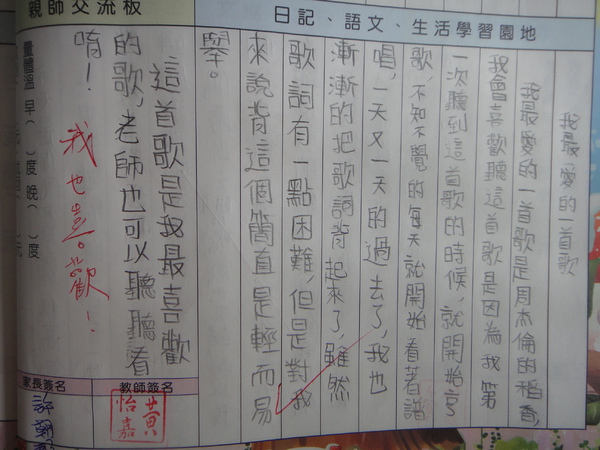 日記、語文、生活學習園地
我最愛的一首歌
我最愛的一首歌是周杰倫的稻香,
我會喜歡聽這首歌是因為我第
一次聽到這首歌的時候,就開始亨
歌,不知不覺的每天就開始看著譜
唱,一天又一天的過去了,我也
漸漸的把歌詞背起來了,雖然
歌詞有一點困難,但是對我
來說背這個簡直是輕而易
舉。
親師交流板
這首歌是我最喜歡
的歌,老師也可以聽聽看
唷!
我也喜歡!
量體溫 早( )度 晚( )度
元
教師簽名
黃怡嘉
家長簽名
許